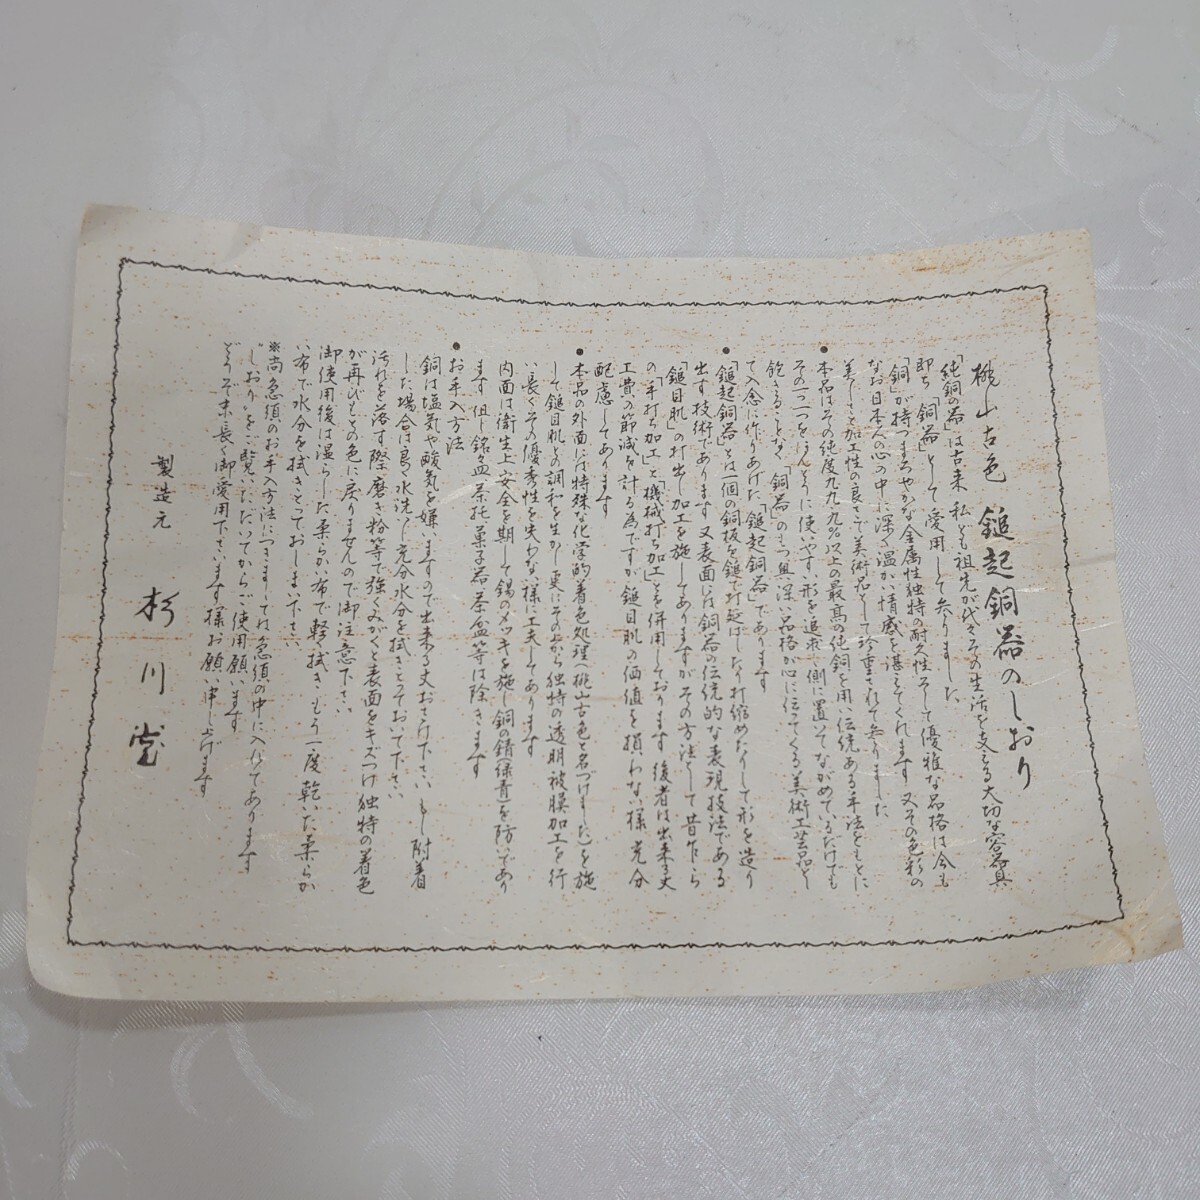 桃山古色 鎚起銅器のしおり
「純銅の器」は古来 私ども祖先が代々その生活を支える大切な容器具
即ち「銅器」として愛用して参りました。
「銅」が持つまろやかな金属性独特の耐久性そして優雅な品格は今も
なお日本人の心の中に深く温かい情感を湛えてくれます 又その色彩の
美しさと加工性の良さで美術品として珍重されて参りました
●本品はその純度九九.九%以上の最高の純銅を用い伝統ある手法をもとに
その一つ一つをほんとうに使いやすい形を追求し側に置いてながめているだけでも
飽きることなく「銅器」のもつ奥深い品格が心に伝ってくる美術工芸品とし
て入念に作りあげた「鎚起銅器」であります
●「鎚起銅器」とは一個の銅板を鎚で打延ばしたり打縮めたりして形を造り
出す技術であります 又表面には銅器の伝統的な表現技法である
「鎚目肌」の打出し加工を施してありますがその方法として昔乍ら
の「手打ち加工」と「機械打ち加工」を併用しております 後者は出来る丈
工費の節減を計る為ですが鎚目肌の価値を損わない様 充分
配慮してあります
●本品の外面には特殊な化学的着色処理(桃山古色と名づけました)を施
して鎚目肌との調和を生かし 更にその上から独特の透明被膜加工を行
い長くその優秀性を失わない様に工夫してあります
内面は衛生上安全を期して錫のメッキを施し銅の錆(緑青)を防いであり
ます 但し銘々皿 茶托 菓子器 茶盆等は除きます
●お手入方法
銅は塩気や酸気を嫌いますので出来る丈おさけ下さい もし附着
した場合は良く水洗いし充分水分を拭きとっておいて下さい
汚れを落す際 磨き粉等で強くみがくと表面をキズつけ独特の着色
が再びもとの色に戻りませんので御注意下さい
御使用後は湿らした柔らかい布で軽く拭き もう一度乾いた柔らか
い布で水分を拭きとっておしまい下さい
※尚 急須のお手入方法につきましては急須の中に入れてあります
“しおり”をご覧いただいてからご使用願います
どうぞ末長く御愛用下さいます様お願い申し上げます
製造元 杉川堂